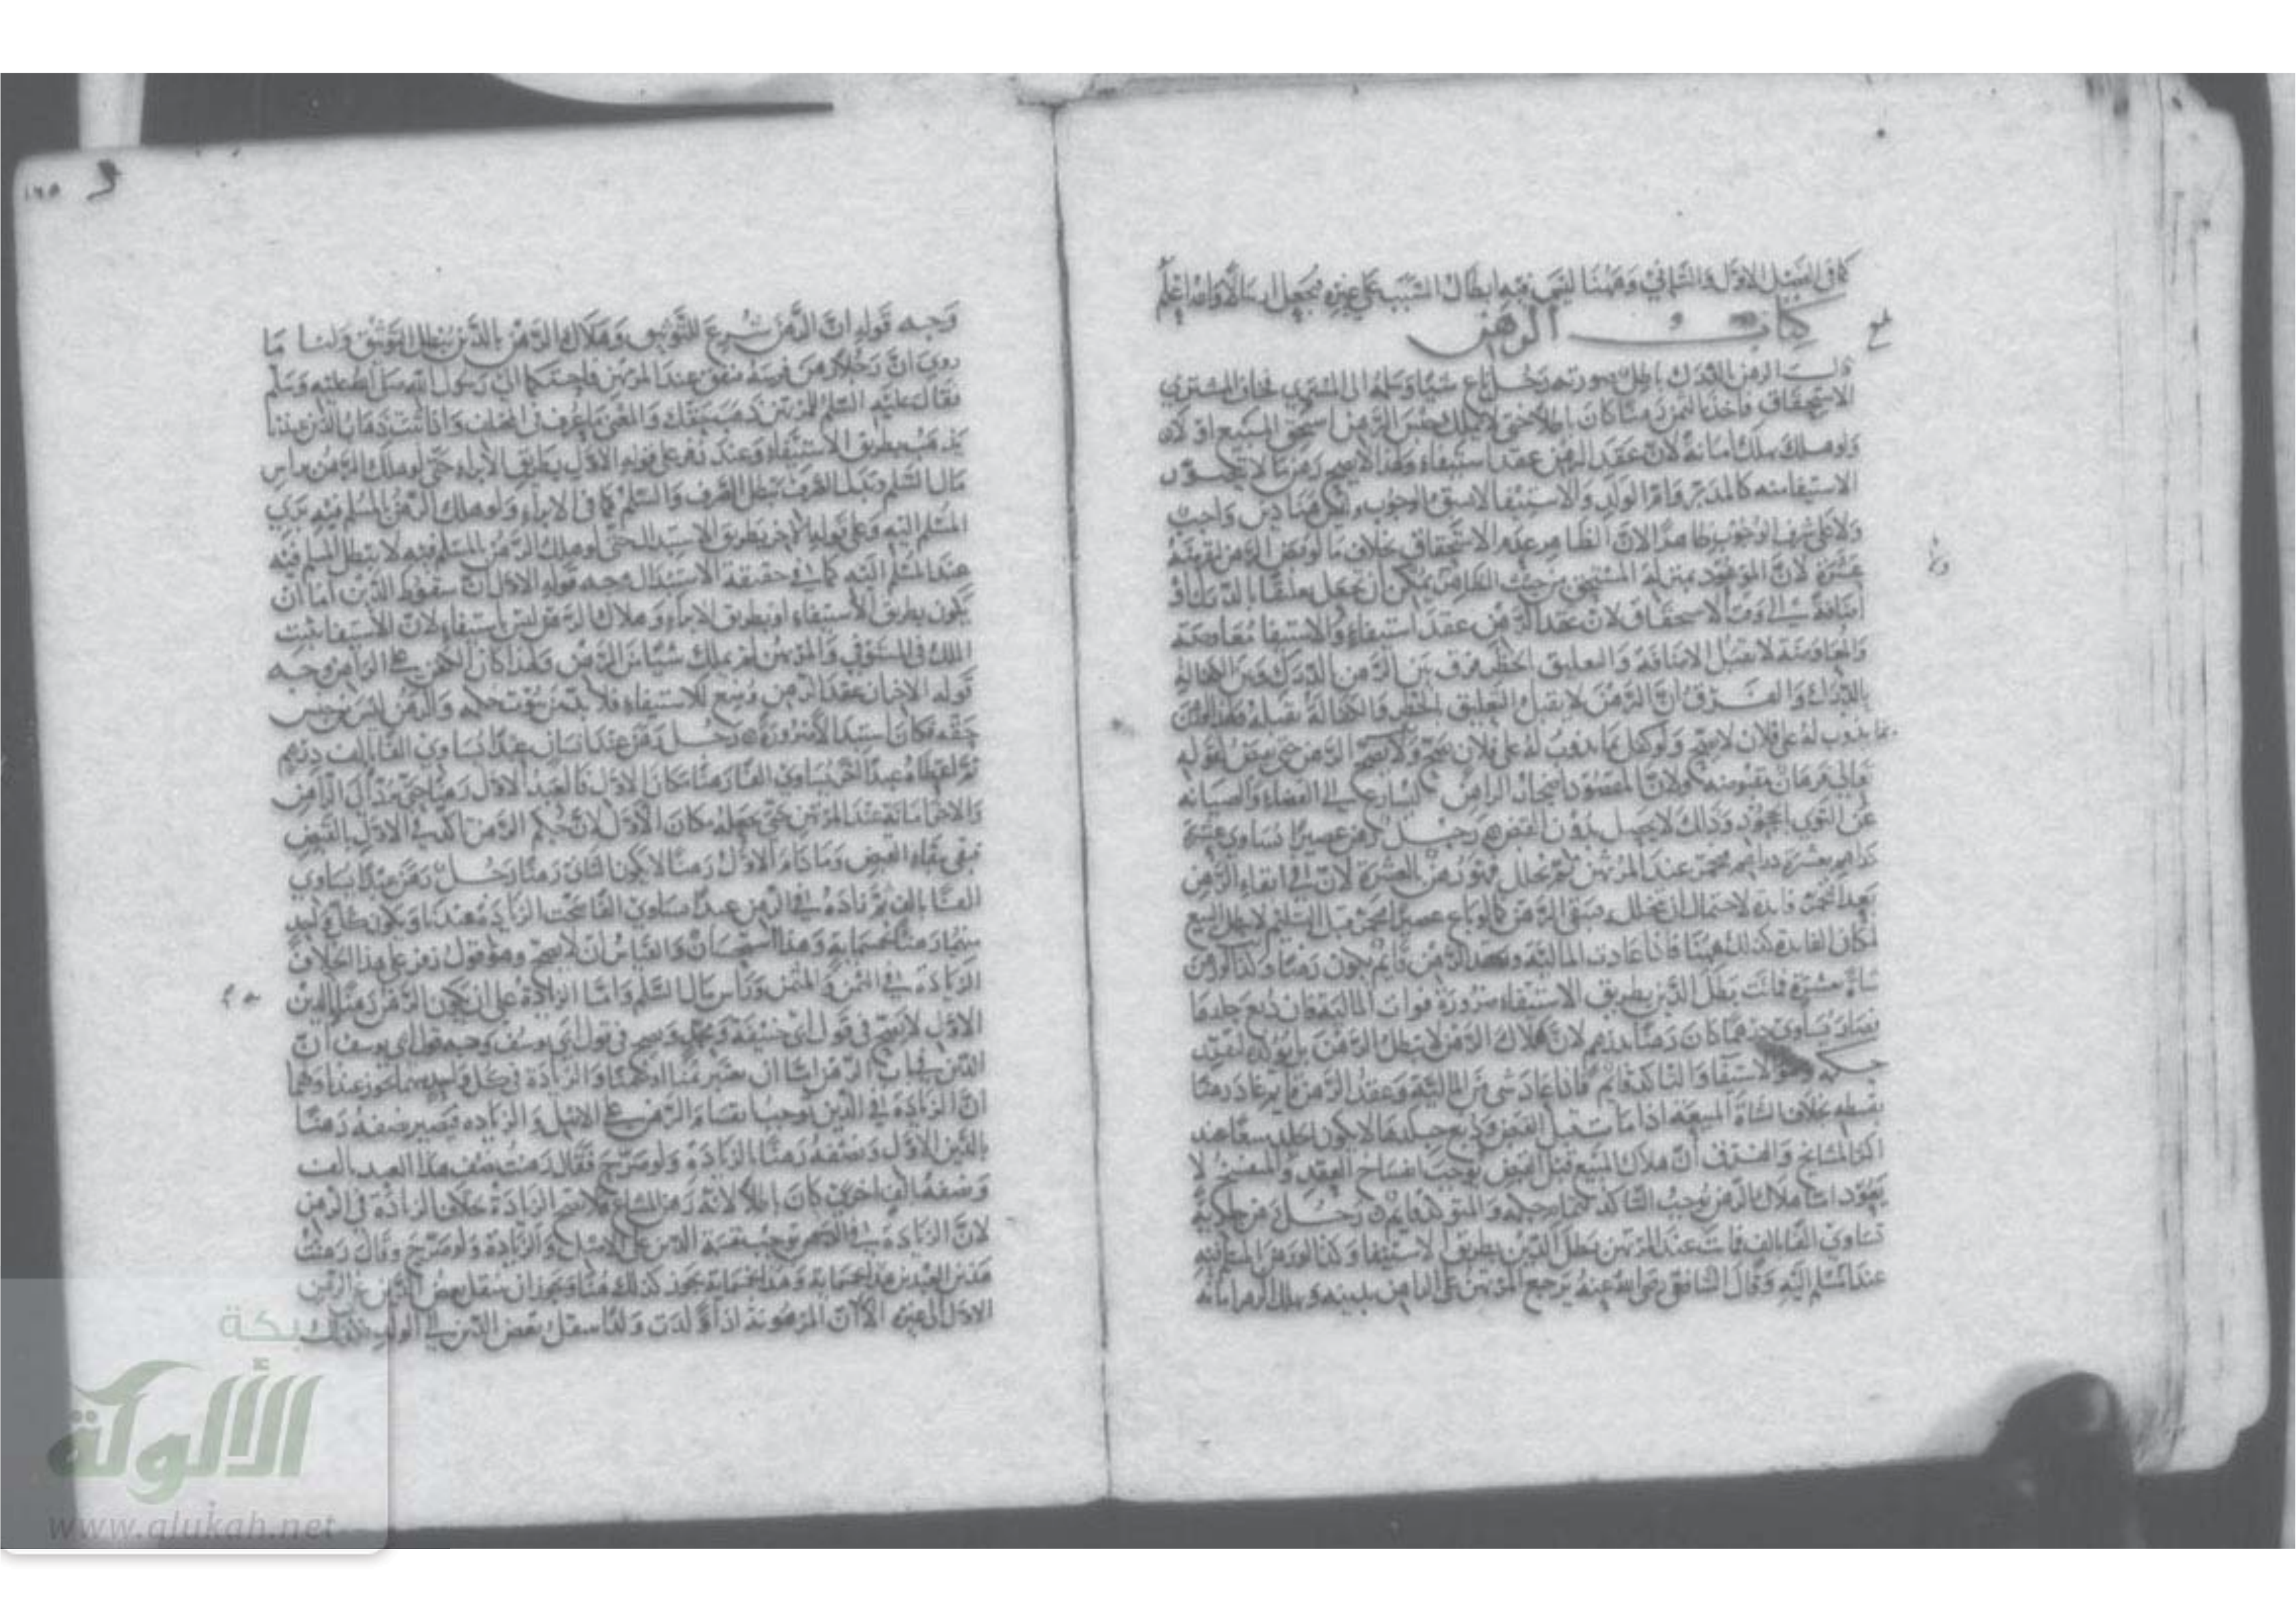 كما في الفصل الاول والثاني وههنا ليس فيه ابطال السبب على غيره فيجعل ابتداء والله اعلم
كتاب الرهن
قال الرهن بالدرك باطل صورته رجل باع شيئا وسلمه الى المشتري فخاف المشتري
الاستحقاق فاخذ بالثمن رهنا كان باطلا حتى لا يملك حبس الرهن استحق المبيع او لا
ولو هلك يهلك امانة لان عقد الرهن عقد استيفاء ولهذا لا يصح رهن ما لا يجوز
الاستيفا منه كالمدبر وام الولد والاستيفا لا يسبق الوجوب وليس هنا دين واجب
ولا على شرف الوجوب ظاهرا لان الظاهر عدم الاستحقاق بخلاف ما لو قبض الرهن ليقرضه
عشرة لان الموعود بمنزلة المستحق من حيث الظاهر يمكن ان يجعل معلقا بالدرك او
اضافة الى وقت الاستحقاق لان عقد الرهن عقد استيفاء والاستيفا معاوضة
والمعاوضة لا تقبل الاضافة والتعليق بالخطر فرق بين الرهن بالدرك وبين الكفالة
بالدرك والفرق ان الرهن لا يقبل التعليق بالخطر والكفالة تقبله ولهذا لو رهن
بما يذوب له على فلان لا يصح ولو كفل بما يذوب له على فلان يصح ولا يصح الرهن حتى يقبض لقوله
تعالى فرهان مقبوضة ولان المقصود اضجار الراهن ليسارع في القضاء والصيانة
عن التوى بالجحود وذلك لا يحصل بدون القبض رجل رهن عصيرا يساوي عشرة
دراهم بعشرة دراهم فتخمر عند المرتهن ثم تخلل فهو رهن بالعشرة لان في ابقاء الرهن
بعد التخمر فايدة لاحتمال ان يتخلل فبقي الرهن كما لو باع عصيرا فتخمر قبل التسليم لا يبطل البيع
لمكان الفايدة كذلك ههنا فاذا عادت المالية وعقد الرهن قايم يكون رهنا وكذا لو رهن
شاة بعشرة فماتت بطل الدين بطريق الاستيفاء ضرورة فوات المالية فان دبغ جلدها
فصار يساوي درهما كان رهنا بدرهم لان هلاك الرهن لا يبطل الرهن بل يؤكده لتقرر
حكمه وهو الاستيفاء والتاكد قايم فاذا عاد شي من المالية وعقد الرهن قايم عاد رهنا
بقسطه بخلاف الشاة المبيعة اذا ماتت قبل القبض ودبغ جلدها لا يكون الجلد مبيعا عند
اكثر المشايخ والفرق ان هلاك المبيع قبل القبض يوجب انفساخ العقد والمنفسخ لا
يعود اما هلاك الرهن يوجب التاكد رجل رهن جارية
تساوي الفا بالف فماتت عند المرتهن بطل الدين بطريق الاستيفا وكذا لو رهن المسلم اليه
عند المسلم اليه وقال الشافعي رضي الله عنه يرجع المرتهن على الراهن بدينه ويهلك الرهن امانة
وجه قوله ان الرهن شرع للتوثيق وهلاك الرهن بالدين يبطل التوثيق ولنا ما
روي ان رجلا رهن فرسه فنفق عند المرتهن فاحتكما الى رسول الله صلى الله عليه وسلم
فقال عليه السلم للمرتهن ذهب حقك والمعنى ما عرف في المختلف واذا ثبت ذهاب الدين عندنا
يذهب بطريق الاستيفاء وعند زفر على قوله الاول بطريق الابراء حتى لو هلك الرهن براس
مال السلم وبدل الصرف يبطل الصرف والسلم كما في الابراء ولو هلك الرهن بالمسلم فيه بري
المسلم اليه وعلى قوله الاخر بطريق الاستبدال حتى لو هلك الرهن بالمسلم فيه لا يبطل المسلم فيه
عند المسلم اليه كما في حقيقة الاستبدال وجه قوله الاول ان سقوط الدين اما ان
يكون بطريق الاستيفاء او بطريق الابراء وهلاك الرهن ليس باستيفاء لان الاستيفا يثبت
الملك في المستوفي والمرتهن لم يملك شيئا من الرهن ولهذا كان الكفن على الراهن وجه
قوله الاخر ان عقد الرهن وضع للاستيفاء فلا بد من ثبوت حكمه والرهن ليس من جنس
حقه فكان استبدالا ضرورة رجل رهن عند انسان عبدا يساوي الفا بالف درهم
ثم اعطاه عبدا اخر يساوي الفا رهنا مكان الاول فالعبد الاول رهن حتى يرده الى الراهن
والاخر امانة عند المرتهن حتى يجعله مكان الاول لان حكم الرهن تاكد في الاول بالقبض
فبقي ببقاء القبض وما دام الاول رهنا لا يكون الثاني رهنا رجل رهن عبدا يساوي
الفا بالف ثم زاده في الرهن عبدا يساوي الفا صحت الزيادة عندنا ويكون كل واحد
منهما رهنا بخمسماية وهذا استحسان والقياس ان لا يصح وهو قول زفر على هذا الخلاف
الزيادة في الثمن والمثمن وراس مال السلم واما الزيادة على ان يكون الرهن رهنا بالدين
الاول لا يصح في قول ابي حنيفة ومحمد ويصح في قول ابي يوسف وجه قول ابي يوسف ان
الدين في باب الرهن اما ان يعتبر ثمنا او مثمنا والزيادة في كل واحد منهما تجوز عندنا ولهما
ان الزيادة في الدين توجب انقسام الرهن على الاصل والزيادة فيصير نصفه رهنا
بالدين الاول ونصفه رهنا بالزيادة ولو صرح فقال رهنت نصف هذا العبد بالف
ونصفه بالف اخرى كان باطلا لانه رهن المشاع فلا تصح الزيادة بخلاف الزيادة في الرهن
لان الزيادة في الرهن توجب قسمة الدين على الاصل والزيادة ولو صرح وقال رهنت
هذين العبدين هذا بخمسماية وهذا بخمسماية يجوز كذلك هنا ويجوز ان ينتقل بعض الدين عن الرهن
الاول الى غيره الا ان المرهونة اذا ولدت ولدا ينتقل بعض الدين الى الولد
شبكة
الألوكة
www.alukah.net